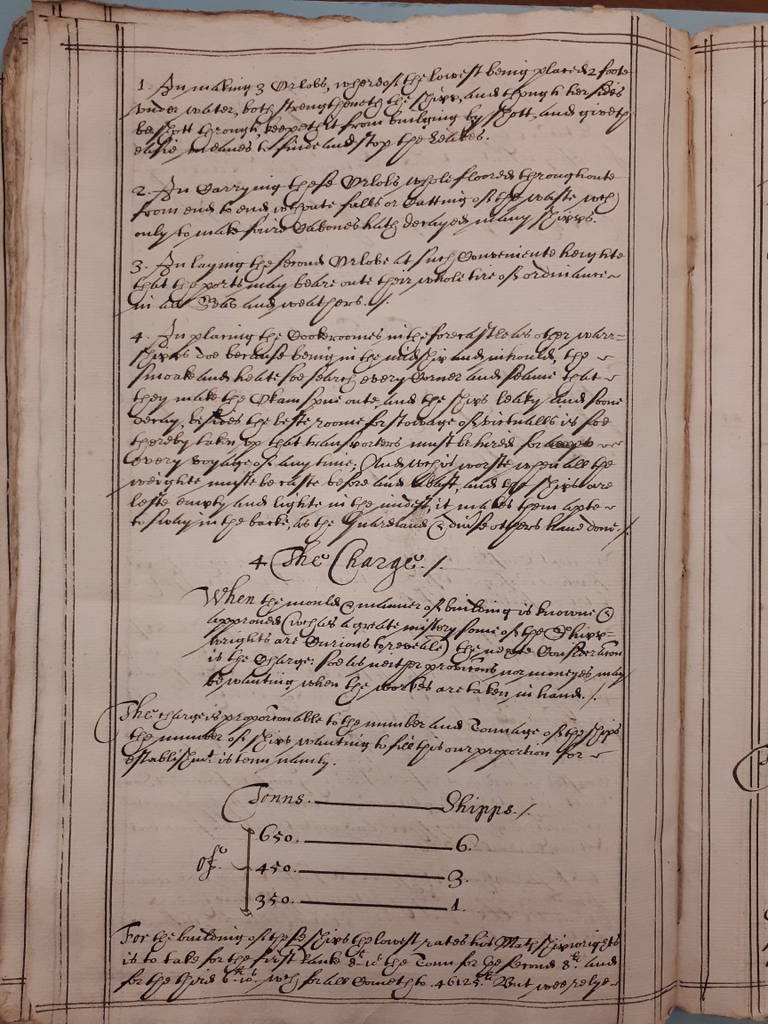 1. In making 3 Orlobs, whereof the lowest being placed 2 foote
under water, both strengtheneth the shipp, and though her sides
be shott through, keepeth it from building by shott, and giveth
easie meanes to finde and stop the leakes.
2. In carrying these Orlobs whole floored throughoute
from end to end, without falls or Cutting of the waste wch
only to make faire Cabones hath decayed many shipps.
3. In laying the second Orlobe at such Conveniente heighte
that the ports may beare oute their whole tire of ordinance
in all Seas and weathers./.
4. In placing the Cookeroomes in the forecastle as other warr-
shipps doe because being in the midship and in hould, the
smoake and heate soe search every Corner and seame that
they make the Okam spue oute, and the ships leaky and soone
decay, besides the beste roome for stowage of victualls is soe
thereby taken up that transporters must be hired for
every voyage of any time; And wch is worste when all the
weighte muste be caste before and abaft, and the ships are
lefte empty and lighte in the midest, it makes them apte
to sway in the backe, as the Guardland & divrse others have done./
4 The Charge./
When the mould & manner of building is knowne &
approved (wch as a greate mistery some of the Shipp-
wrights are Curious to reveale) the nexte Consideracon
is the Charge: soe as neither provicons nor moneyes may
be wanting when the workes are taken in hand./.
The charge is proportonable to the number and Tonnage of the ships
the number of ships wanting to fill this our proportion for
establishmt. is tenn namly.
Tonns. Shipps./
650. 6.
Of 450. 3.
350. 1.
For the building of these ships the lowest rates his Mats shipwrights
is to take for the first Ranke the Tonn for the second 8li. and
for the third wch for all Cometh to .46125.li But wee relye